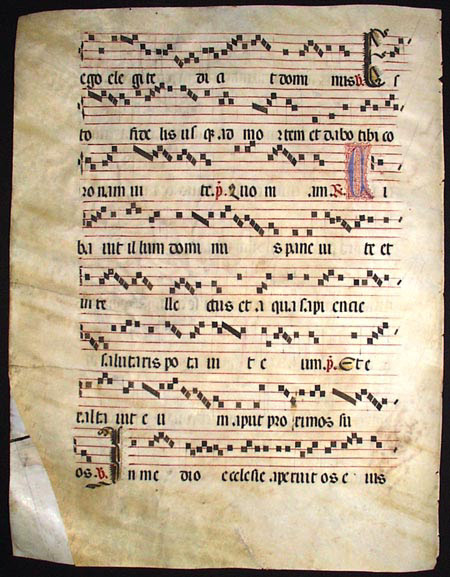 ego ele gi te di ci t domi nus v. E s
to fide lis us q. ad mo rtem et dabo tibi co
ro nam ui te. p. Quo ni am. R. C i
ba uit il lum domi nus s pane ui te et
in te lle ctus et a qua sapi encie
salutaris po ta ui t e um. p. Et e
xalta uit e u m aput pro ximos su
os. v. I n me dio ecclesie aperuit os e ius